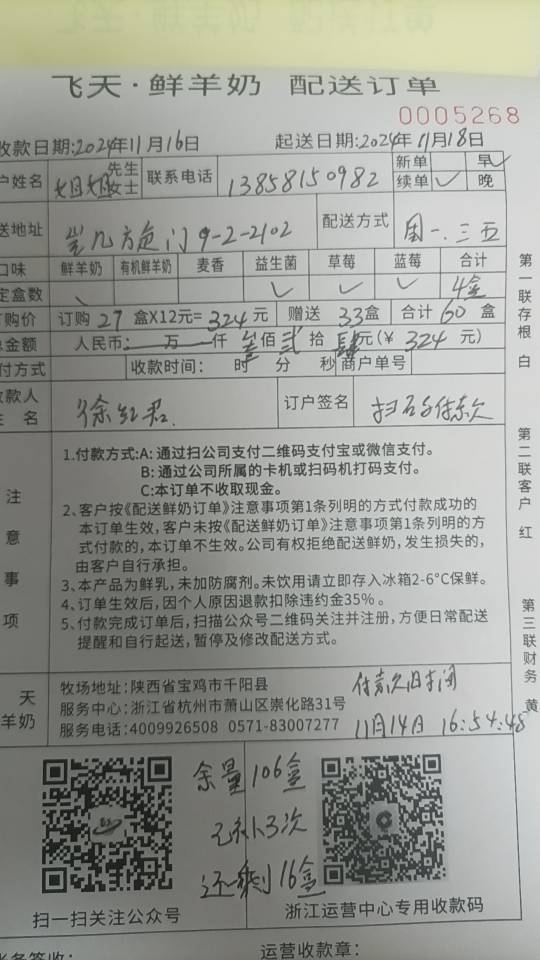 飞天·鲜羊奶 配送订单
0005268
收款日期:2024年11月16日 起送日期:2024年11月18日
户姓名 姐姐 先生 女士 联系电话 13858150982 新单 早✓
续单✓ 晚
送地址 门9-2-2102 配送方式 周一.三五
口味 鲜羊奶 有机鲜羊奶 麦香 益生菌 草莓 蓝莓 合计
定盒数 ✓ ✓ ✓ ✓ 4盒
订购价 订购27盒X12元=324元 赠送33盒 合计60盒
总金额 人民币: 万 仟 叁佰 贰拾 肆元(¥ 324 元)
付方式 收款时间: 时 分 秒 商户单号
收款人姓名 徐红君 订户签名 扫码付款
注意事项
1.付款方式:A: 通过扫公司支付二维码支付宝或微信支付。
B: 通过公司所属的卡机或扫码机打码支付。
C:本订单不收取现金。
2、客户按《配送鲜奶订单》注意事项第1条列明的方式付款成功的
本订单生效, 客户未按《配送鲜奶订单》注意事项第1条列明的方
式付款的, 本订单不生效。公司有权拒绝配送鲜奶, 发生损失的,
由客户自行承担。
3、本产品为鲜乳, 未加防腐剂。未饮用请立即存入冰箱2-6°C保鲜。
4、订单生效后, 因个人原因退款扣除违约金35%。
5、付款完成订单后, 扫描公众号二维码关注并注册, 方便日常配送
提醒和自行起送, 暂停及修改配送方式。
第一联存根 白
第二联客户 红
第三联财务 黄
天
羊奶
牧场地址:陕西省宝鸡市千阳县 付款时间
服务中心:浙江省杭州市萧山区崇化路31号
服务电话:4009926508 0571-83007277 11月14日 16:54:48
余量106盒
已补3次
还剩16盒
扫一扫关注公众号 浙江运营中心专用收款码
签收: 运营收款章: